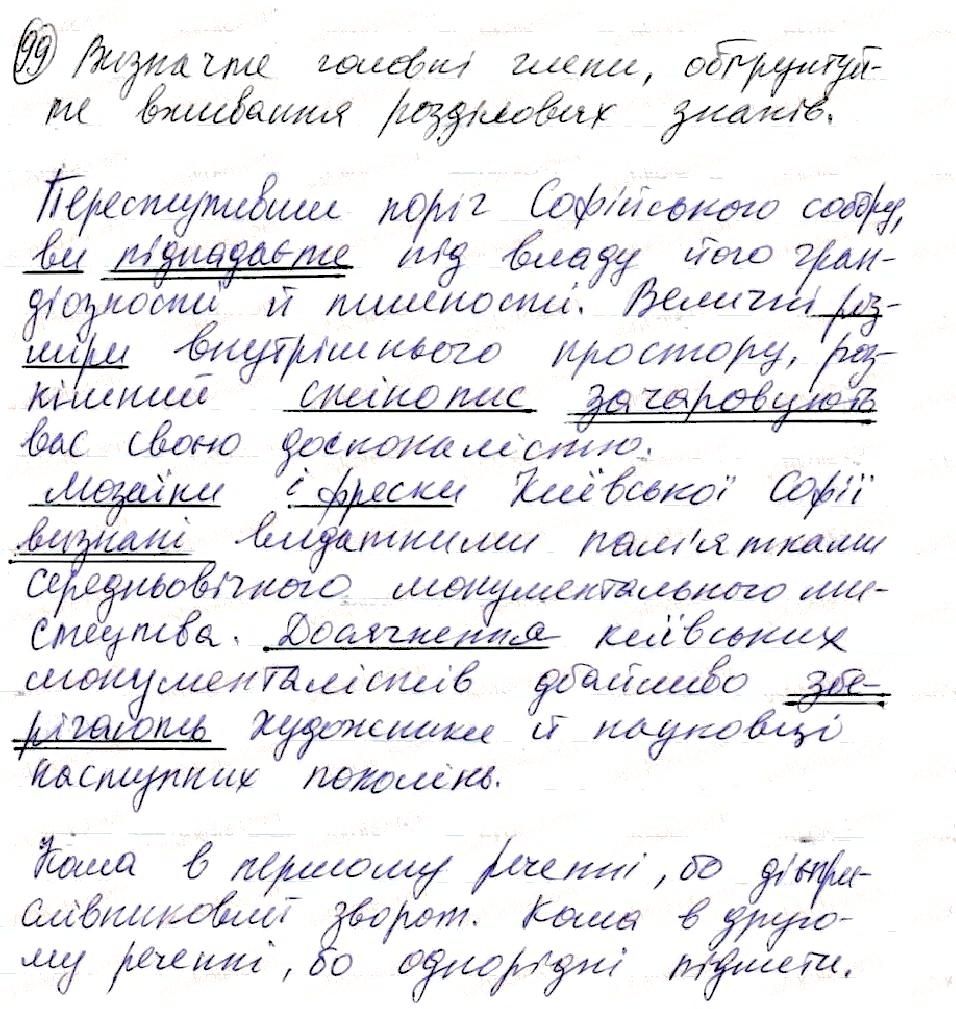 99 Визначте головні члени, обґрунтуй-
те вживання розділових знаків.
Переступивши поріг Софійського собору,
ви підпадаєте під владу його гран-
діозности й пишності. Величні роз-
міри внутрішнього простору, роз-
кішний стінопис зачаровують
вас свою досконалістю.
Мозаїки і фрески Київської Софії
визнані видатними пам'ятками
середньовічного монументального ми-
стецтва. Досягнення київських
монументалістів дбайливо збе-
рігають художники й науковці
наступних поколінь.
Кома в першому реченні, бо дієпри-
слівниковий зворот. Кома в друго-
му реченні, бо однорідні підмети.